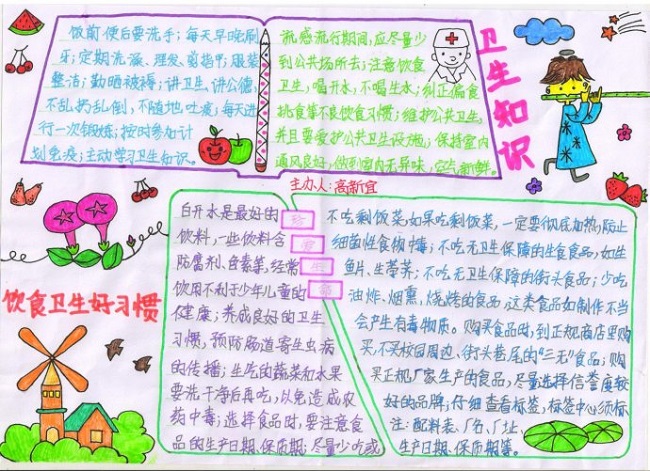 饭前便后要洗手；每天早晚刷
牙；定期洗澡、理发、剪指甲；服装
整洁；勤晒被褥；讲卫生、讲公德，
不乱扔乱倒，不随地吐痰；每天进
行一次锻炼；按时参加计
划免疫；主动学习卫生知识。
流感流行期间，应尽量少
到公共场所去；注意饮食
卫生，喝开水，不喝生水；纠正偏食
挑食等不良饮食习惯；维护公共卫生，
并且要爱护公共卫生设施；保持室内
通风良好，做到室内无异味，空气新鲜。
卫生知识
主办人：高新宜
饮食卫生好习惯
白开水是最好的
饮料，一些饮料含
防腐剂、色素等，经常
饮用不利于少年儿童的
健康；养成良好的卫生
习惯，预防肠道寄生虫病
的传播；生吃的蔬菜和水果
要洗干净后再吃，以免造成农
药中毒；选择食品时，要注意食
品的生产日期、保质期；尽量少吃或
不吃剩饭菜，如果吃剩饭菜，一定要彻底加热，防止
细菌性食物中毒；不吃无卫生保障的生食食品，如生
鱼片、生荸荠；不吃无卫生保障的街头食品；少吃
油炸、烟熏、烧烤的食品，这类食品如制作不当
会产生有毒物质。购买食品时，到正规商店里购
买，不买校园周边、街头巷尾的“三无”食品；购
买正规厂家生产的食品，尽量选择信誉度较
好的品牌，仔细查看标签，标签中必须标
注：配料表、厂名、厂址、
生产日期、保质期等。